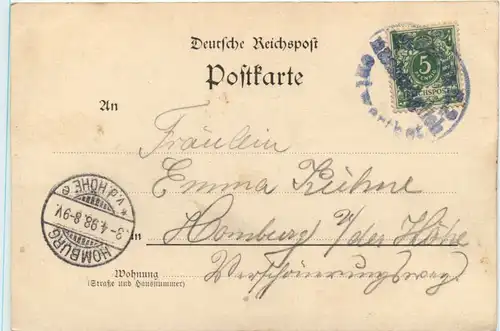 Deutsche Reichspost
Postkarte
An
Fräulein
Emma Kühne
in Homburg v/der Höhe
Verschönerungsweg
Wohnung
(Straße und Hausnummer)
HOMBURG
v.d.HÖHE
3.4.98.8-9V.
5
REICHSPOST